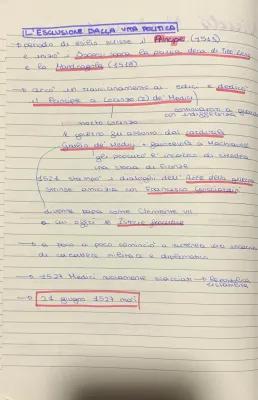 L'ESCLUSIONE DALLA VITA POLITICA
→ periodo di esilio scrisse il Principe (1513)
e iniziò i Discorsi sopra la prima deca di Tito Livio
e la Mandragola (1518)
→ cercò un riavvicinamento ai Medici e dedicò
il Principe a Lorenzo (2) de' Medici
con indifferenza
morto Lorenzo
il governo fu assunto dal cardinale
Giulio de' Medici → Machiavelli
gli procurò l'incarico di scrivere
una storia di Firenze
1521 stampò i dialoghi dell'Arte della guerra
strinse amicizia con Francesco Guicciardini
divenne papa come Clemente VII
a cui offrì le Istorie fiorentine
→ a poco a poco cominciò a
di carattere militare e diplomatico
→ 1527 Medici nuovamente scacciati → Repubblica
→ 21 giugno 1527 morì